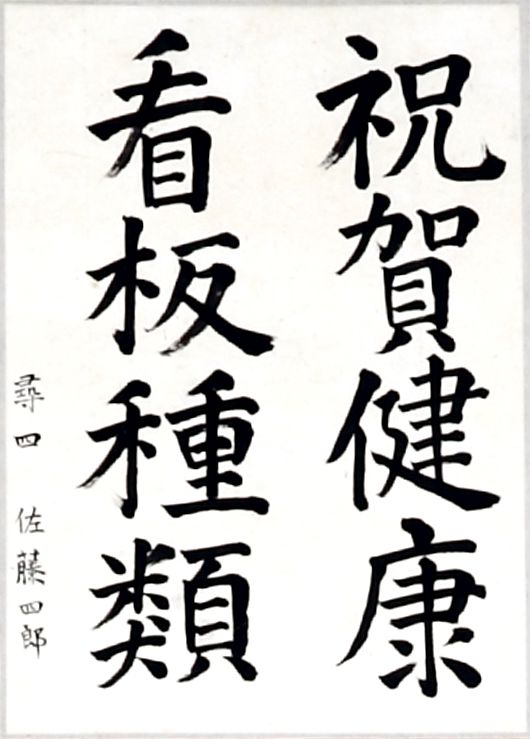 祝賀健康
看板種類
尋四 佐藤四郎